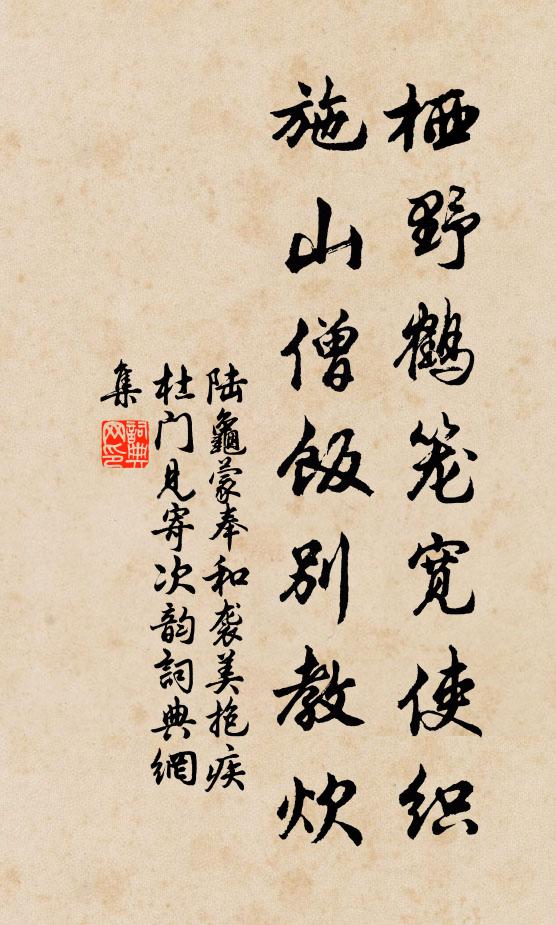 栖野鹤笼宽使织
施山僧饭别教炊
陆龜蒙奉和袭美抱疾
杜门见寄次韵詞典網
集
詞典
网印